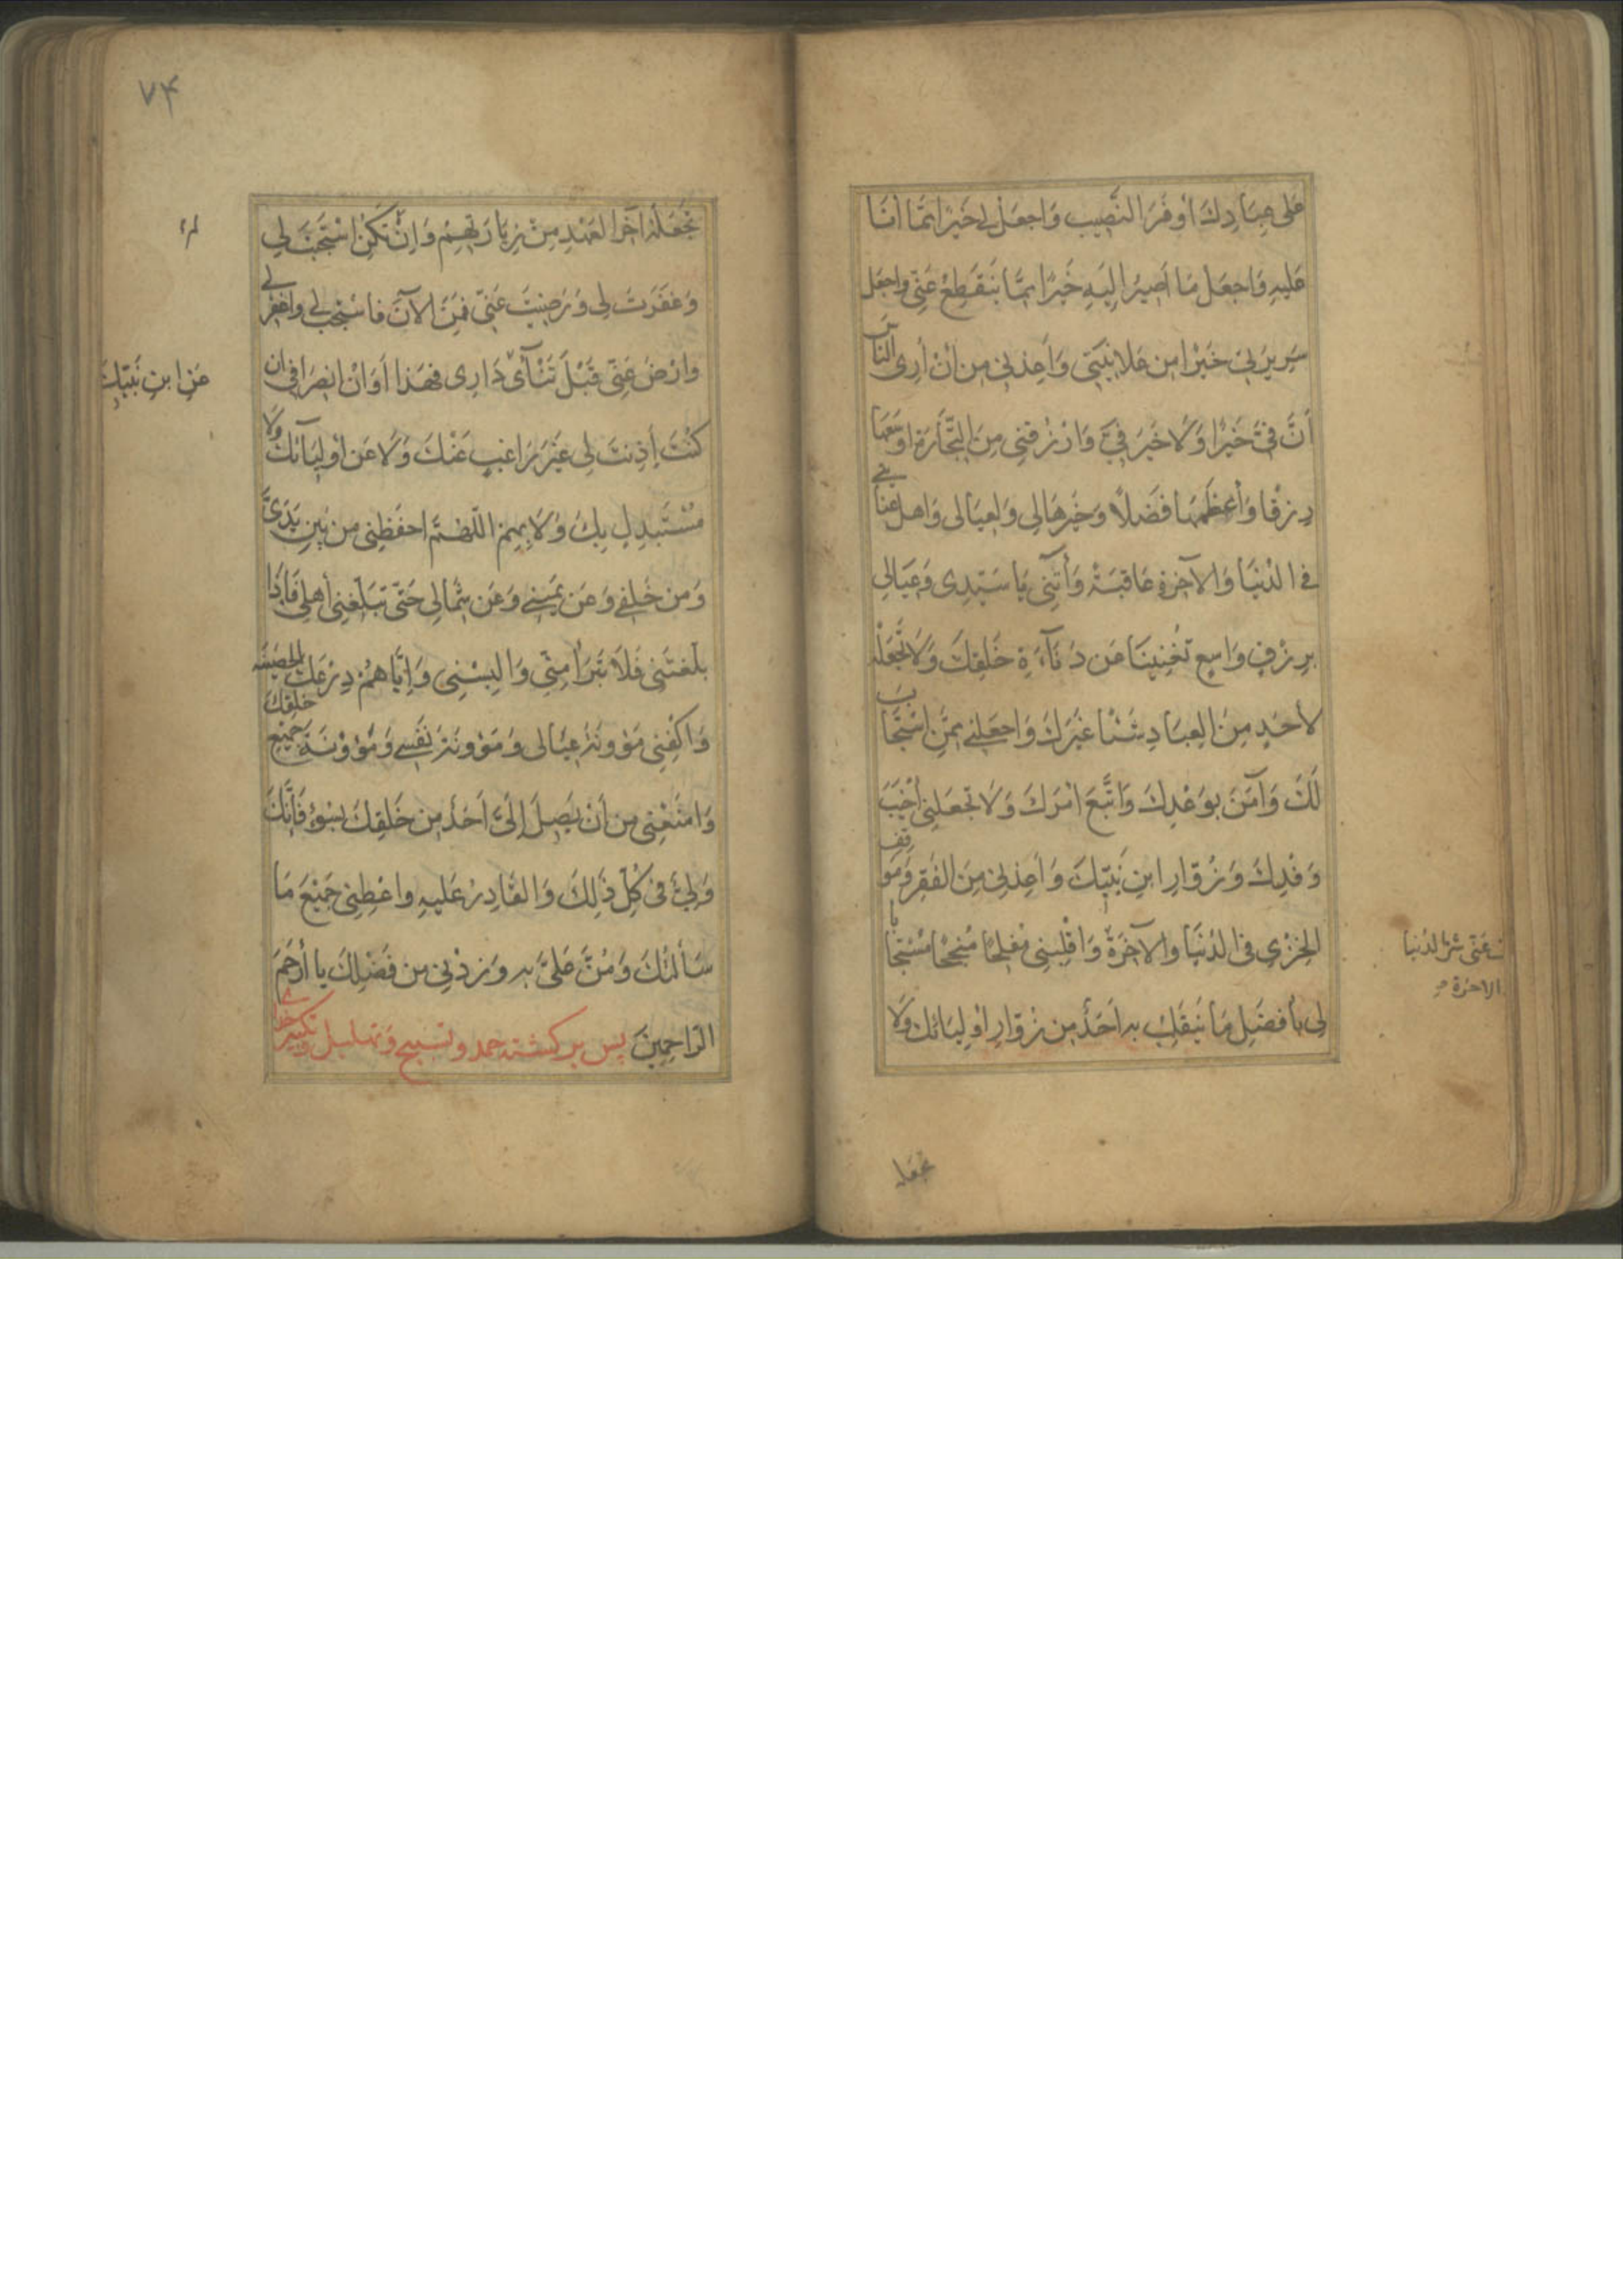 عَلى عِبَادِكَ اَوْفَرَ النَّصِيب وَاجعَلْ لِي خَيْرًا مِمَّا أَنَا
عَلَيهِ وَاجعَلْ مَا اَصِيرُ اِلَيهِ خَيرًا مِمَّا يَنقَطِعُ عَنِّي وَاجعَل
سَرِيرَتِي خَيْرًا مِن عَلانِيَتِي وَأَعِذنِي مِن أَنْ أُرِى النَّاسَ
أَنَّ فِيَّ خَيْرًا وَلَا خَيرَ فِيَّ وَارْزُقنِي مِنَ التِّجَارَةِ اَوسَعَهَا
رِزْقًا وَأَعظَمَهَا فَضَلًا وَخَيرَهَا لِي وَلِعِيَالِى وَاهل عنَايتي
فِى الدُنْيَا وَالآخِرَةِ عَاقِبَةً وَأْتِنِى يَا سَيِّدِى وَعِيَالِي
بِرِزْقٍ وَاسِعٍ تُغْنِينَا عَن دُنَآءَةِ خَلقِكَ وَلَا تَجْعَلْ
لأحَدٍ مِنَ العِبَادِ مَنًّا غَيْرَكَ وَاجعَلنِي مِمَّنِ اسْتَجَابَ
لَكَ وَآمَنَ بِوَعْدِكَ وَاتَّبَعَ امْرَكَ وَلَا تَجعَلنِي أَخْيَبَ
وَفْدِكَ وَزُوّارِ ابنِ نَبِيّكَ وَأَعِذنِي مِنَ الفَقرِ وَمَوَاقِفِ
الخِزْى فِى الدُنْيَا وَالآخِرَةِ وَاقْلِبنِي مُفلِحًا مُنجِحًا مُسْتَجَابًا
لِى بِأَفضَلِ مَا يَنقَلِبُ بِهِ اَحَدٌ مِن زُوّارِ اَوْلِيَائِكَ وَلَا
عَنّى شرّ الدُنيا
الاخرة
تجعله
٧۴
تَجْعَلْهُ آخِرَ العَهْدِ مِنْ زِيَارَتِهِمْ وَاِنْ تَكُنِ اسْتَجَبْتَ لِي
وَغَفَرتَ لِى وَرَضِيتَ عَنِّي فَمِنَ الآنَ فَاسْتَجِب لِي وَاغفِر لِي
وَارْضَ عَنّى قَبْلَ تَنْآىَ دَارِى فهَذا اَوَانُ انصِرَافِي ان
كُنْتَ أَذِنتَ لِى غَيْرَ رَاغِبٍ عَنْكَ وَلَا عَن اَوْلِيَآئِكَ وَلَا
مُسْتَبدِلٍ بِكَ وَلَا بِهِمْ اللّهُمَّ احفَظنِى مِن بَيْنِ يَدَىَّ
وَمِن خَلفِي وَعَن يَمِينِي وَعَن شِمَالِى حَتّى تُبَلّغَنِى أَهلِى فَاِذَا
بَلّغتَنِى فَلَا تَبَرَأْ مِنّى وَالبِسْنِى وَاِيَّاهُمْ دِرْعَكَ الحَصِينَة
وَاكْفِنِى مَؤونَةَ عِيَالى وَمَؤونَةَ نَفسِي وَمَؤونَةَ جَمِيْعِ خَلقِكَ
وَامنَعْنِى مِن أَنْ يَصِلَ اِلَىَّ اَحَدٌ مِن خَلقِكَ بِسُوءٍ فَاِنَّكَ
وَلِيُّ فِى كُلّ ذَلِكَ وَالقَادِرُ عَلَيهِ وَاعْطِنِى جَمِيْعَ مَا
سَأَلتُكَ وَمُنَّ عَلىَّ بِهِ وَزِدْنِى مِن فَضْلِكَ يَا أَرْحَمَ
الرّاحِمِينَ پس برگشته حمد وتسبیح وتهلیل وتکبیر خدا
عَن ابنِ نَبِيّكَ